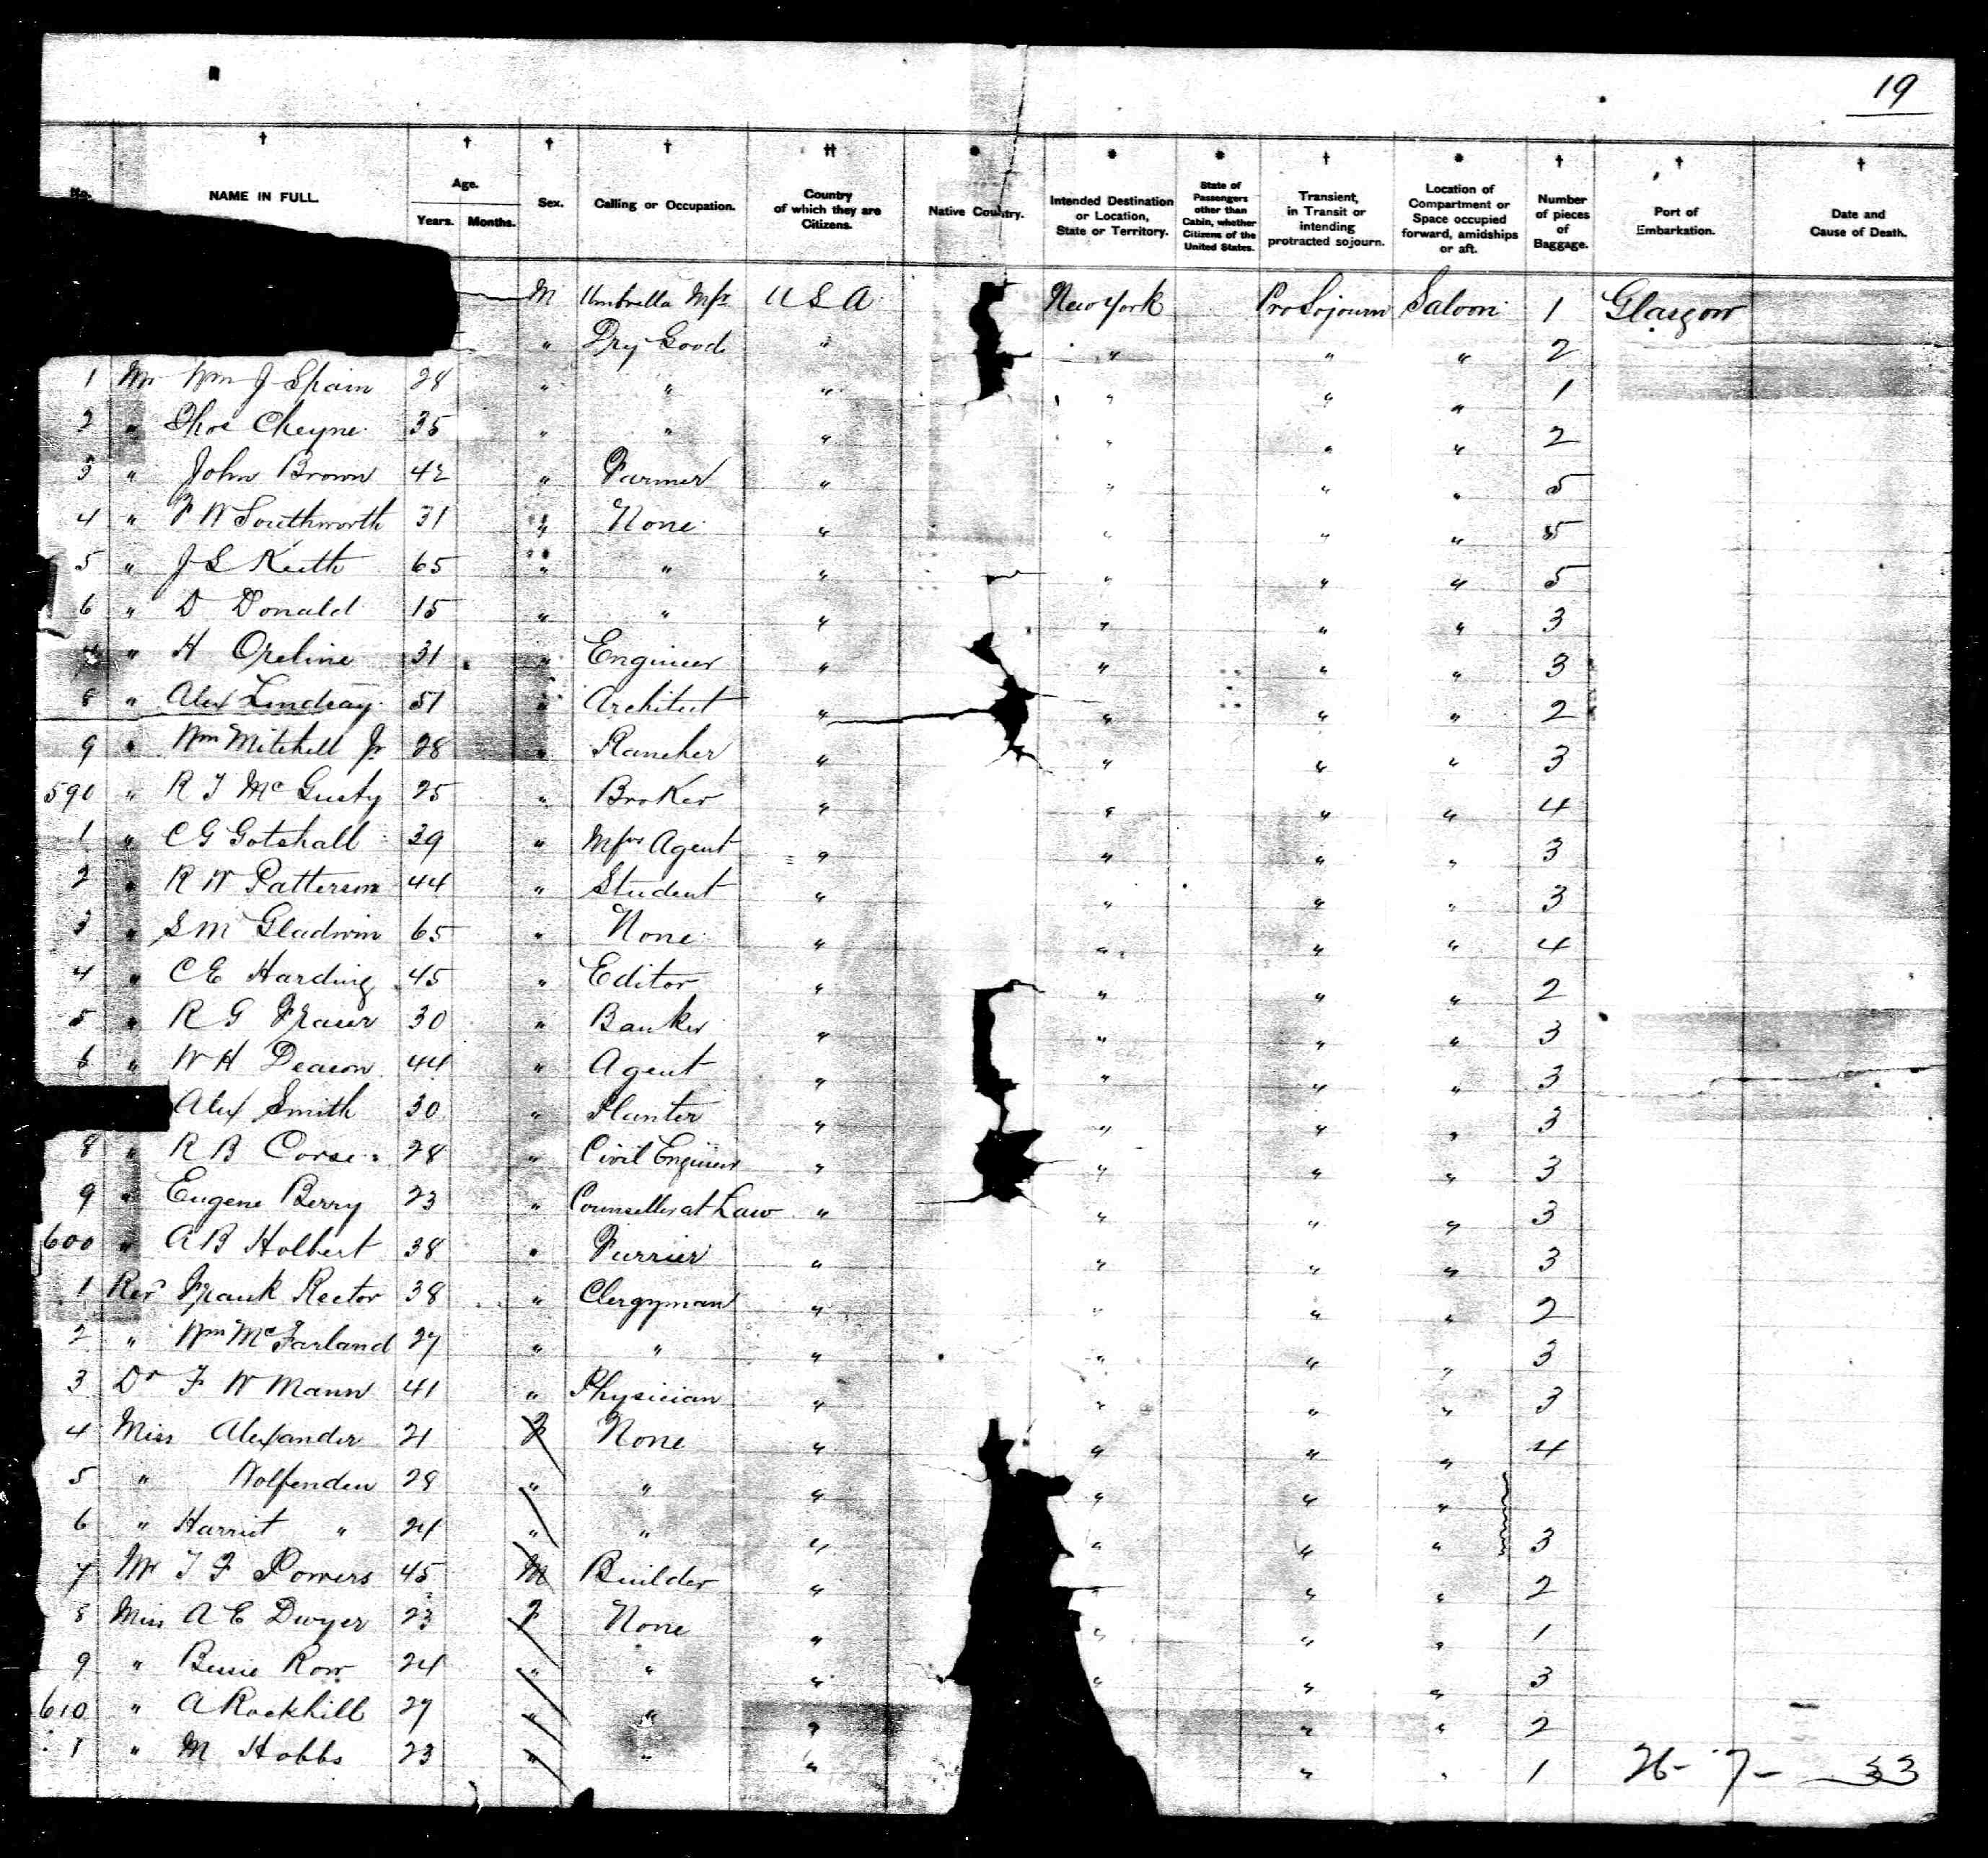 19
No. NAME IN FULL. Age. Years. Months. Sex. Calling or Occupation. Country of which they are Citizens. Native Country. Intended Destination or Location, State or Territory. State of Passengers other than Cabin, whether Citizens of the United States. Transient, in Transit or intending protracted sojourn. Location of Compartment or Space occupied forward, amidships or aft. Number of pieces of Baggage. Port of Embarkation. Date and Cause of Death.
M Umbrella Mfr U S A New York Pro Sojourn Saloon 1 Glasgow
" Dry Goods " " " " 2
1 Mr Wm J Spain 28 " " " " " " 1
2 " Thos Cheyne 35 " " " " " " 2
3 " John Brown 42 " Farmer " " " " 5
4 " F W Southworth 31 " None " " " " 5
5 " J S Keith 65 " " " " " " 5
6 " D Donald 15 " " " " " " 3
" H 31 " Engineer " " " " 3
8 " Alex Lindsay 51 " Architect " " " " 2
9 " Wm Mitchell Jr 28 " Rancher " " " " 3
590 " R J 25 " Broker " " " " 4
1 " C G Gotshall 39 " Mfrs Agent " " " " 3
2 " R W Patterson 44 " Student " " " " 3
3 " S M Gladwin 65 " None " " " " 4
4 " C E Harding 45 " Editor " " " " 2
5 " R G Fraser 30 " Banker " " " " 3
6 " W H Deacon 44 " Agent " " " " 3
Alex Smith 30 " Planter " " " " 3
8 " R B Corse 28 " Civil Engineer " " " " 3
9 " Eugene Berry 23 " Counsellor at Law " " " " 3
600 " A B Holbert 38 " Furrier " " " " 3
1 Rev Frank Rector 38 " Clergyman " " " " 2
2 " Wm McFarland 27 " " " " " " 3
3 Dr F W Mann 41 " Physician " " " " 3
4 Miss Alexander 21 F None " " " " 4
5 " Wolfenden 28 " " " " " "
6 " Harriet " 24 " " " " " " 3
7 Mr T F Powers 45 M Builder " " " " 2
8 Miss A E Dwyer 23 F None " " " " 1
9 " Bessie Row 24 " " " " " " 3
610 " A Rockhill 27 " " " " " 2
1 " M Hobbs 23 " " " " " 1 26 - 7 - 33